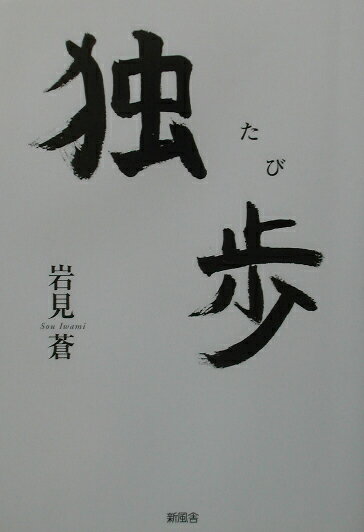 独歩
たび
岩見蒼
Sou Iwami
新風舎